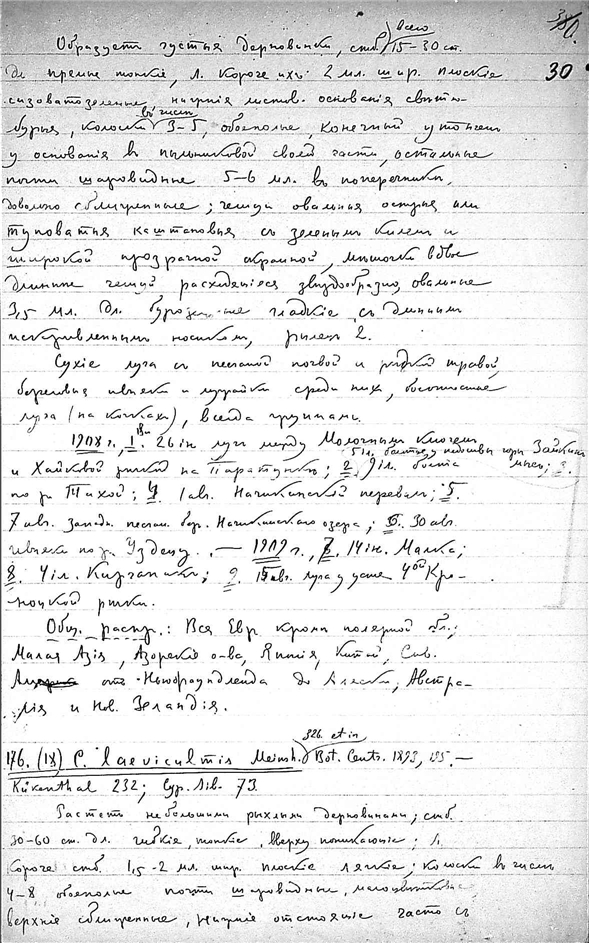 30
всего
Образуетъ густыя дерновинки, стб. 15-30 ст.
тонкіе, л. короче ихъ 2 мл. шир. плоскіе
сизоватозеленые, нижнія листов. основанія свѣтло-
въ числѣ
бурыя, колоски 3-5, обоеполые, конечный утонченъ
у основанія въ пыльниковой своей части, остальные
почти шаровидные 5-6 мл. въ поперечникѣ,
довольно сближенные; чешуи овальныя острыя или
туповатыя каштановыя съ зеленымъ килемъ и
широкой прозрачной окраиной, мѣшочки вдвое
длиннѣе чешуй расходящіеся звѣздообразно, овальные
3,5 мл. дл. гладкіе съ длиннымъ
искривленнымъ носикомъ, рылецъ 2.
Сухіе луга съ песчаной почвой и рѣдкой травой,
березовыя ивняки и лужайки среди нихъ, болотистые
луга (на кочкахъ), всегда группами.
1908 г., 1. 26 ін. луга между Молочнымъ ключемъ
5 іл. болото у подошвы горы Зайкинъ
и Хайковой рѣчкой на Паратунку; 2. 9 іл. болота мысъ; 3.
по р. Тихой; 4. 1 авг. Начикинскій перевалъ; 5.
7 авг. западн. песчан. бер. Начикинскаго озера; 6. 30 авг.
ивняки по р. Уздецу. — 1909 г., 7. 14 ін. Малка;
8. 4 іл. Кирганикъ; 9. 15 авг. луга у устья 4ой Кро-
ноцкой рѣчки.
Общ. распр.: Вся Евр. кромѣ полярной обл.;
Малая Азія, Азорскіе о-ва, Японія, Китай, Сѣв.
отъ Ньюфаундленда до Аляски, Австра-
лія и Нов. Зеландія.
326. et in
176. (18) C. laeviculmis Meinsh. Bot. Cents. 1893, 195. —
Kükenthal 232; Cyp. Sib. 73.
Растетъ небольшими рыхлыми дерновинами; стб.
30-60 ст. дл. гибкіе, тонкіе, вверху поникающіе; л.
короче стб. 1,5-2 мл. шир. плоскіе мягкіе; колоски въ числѣ
4-8 обоеполые почти шаровидные, малоцвѣтковые
верхніе сближенные, нижніе отстоящіе часто съ